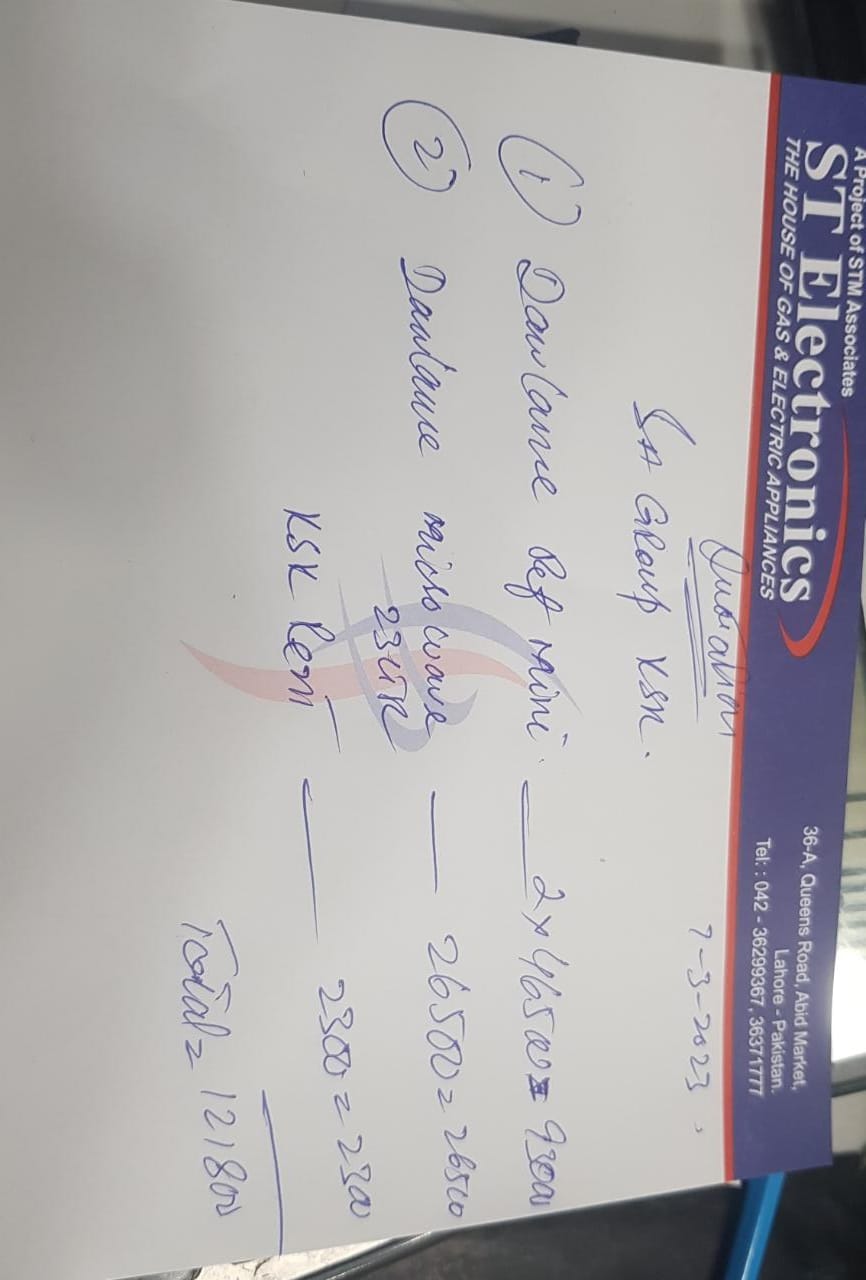 A Project of STM Associates
ST Electronics
THE HOUSE OF GAS & ELECTRIC APPLIANCES
36-A, Queens Road, Abid Market,
Lahore - Pakistan.
Tel: : 042 - 36299367, 36371777
Quotation 7-3-2023.
SA Group KSK.
1) Dawlance Ref mini. — 2 x 46500 = 93000
2) Dawlance microwave — 26500 = 26500
KSK Rent — 2300 = 2300
Total = 121800